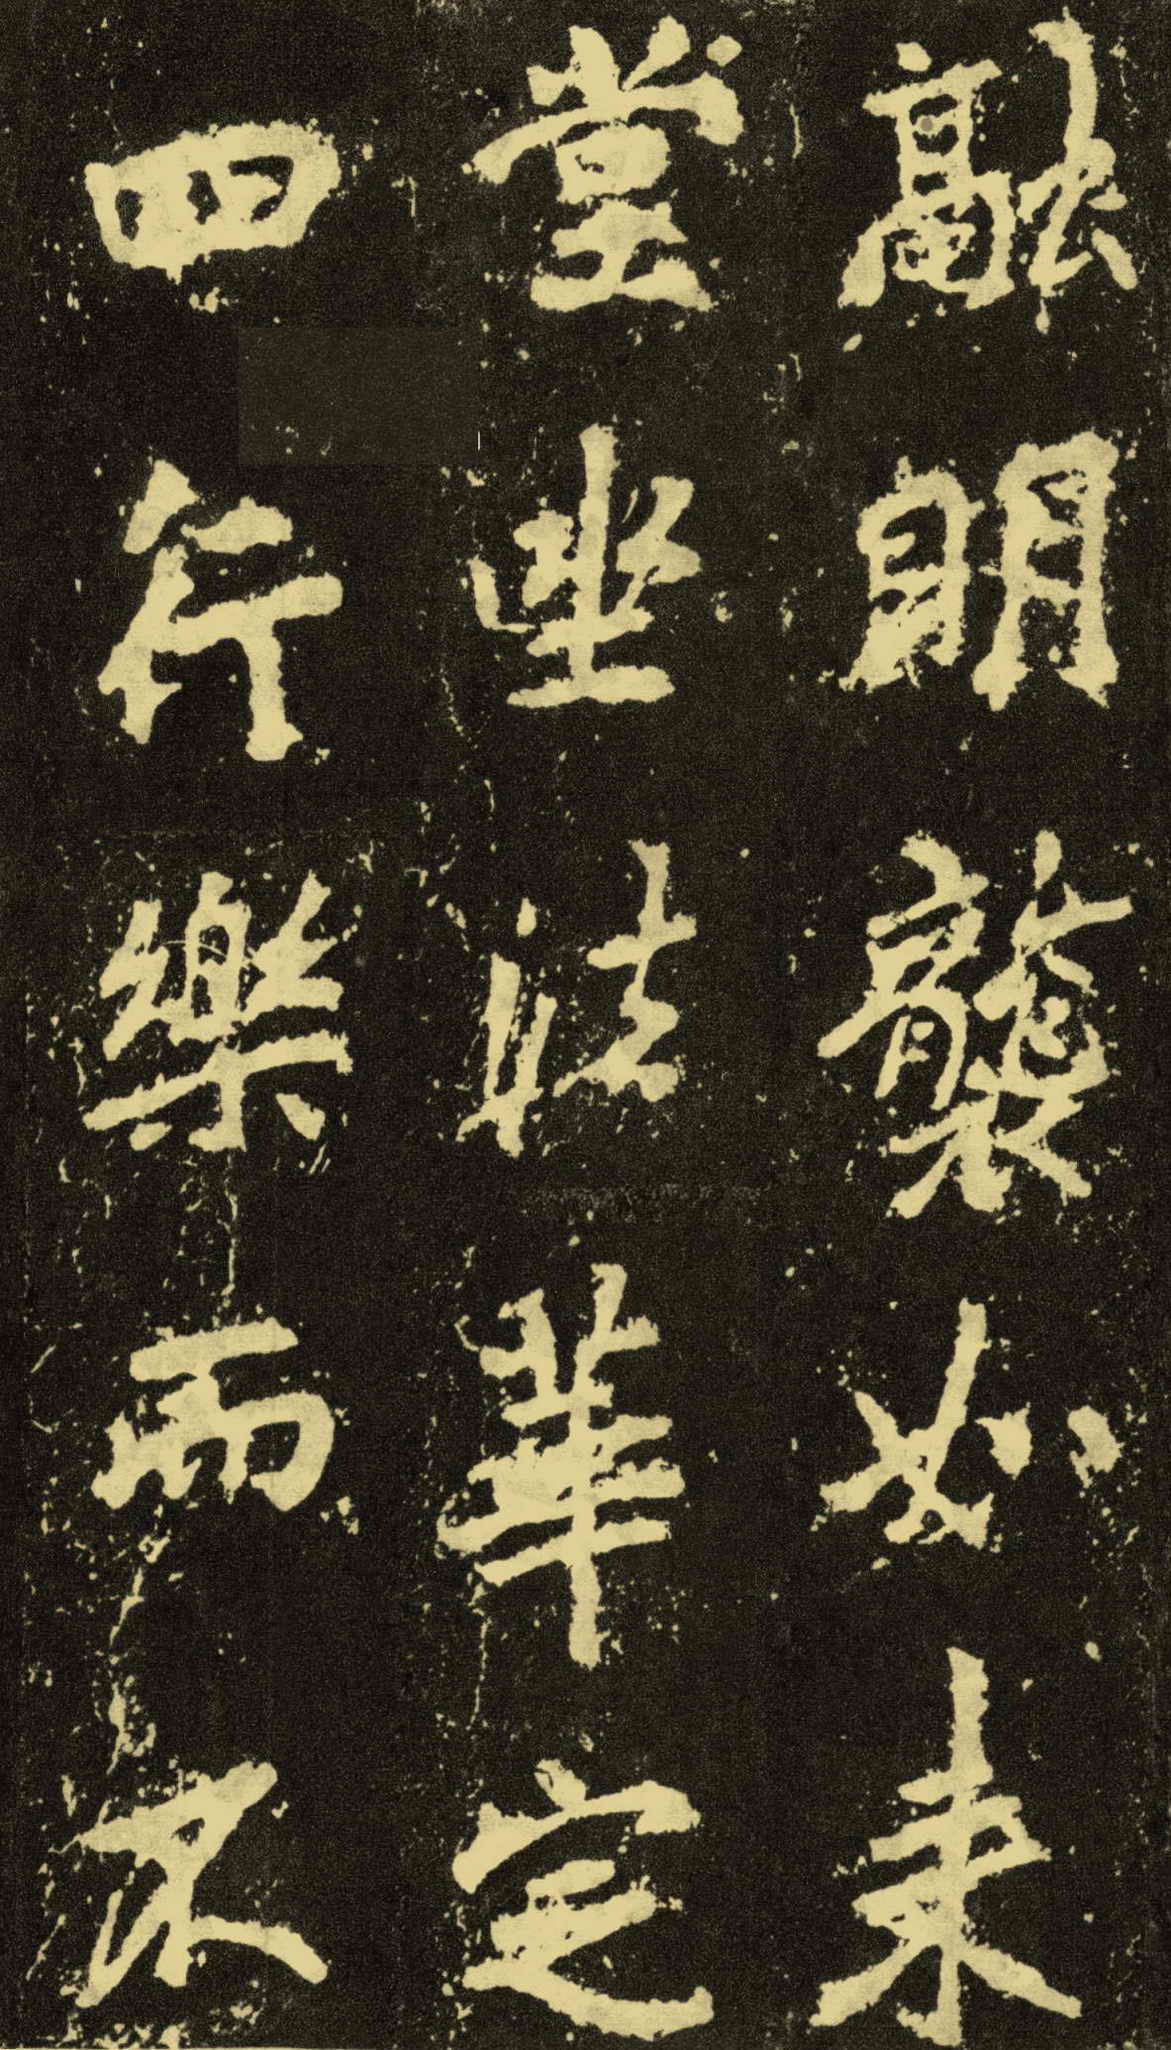 融明襲如来
堂坐法華定
四行樂而不